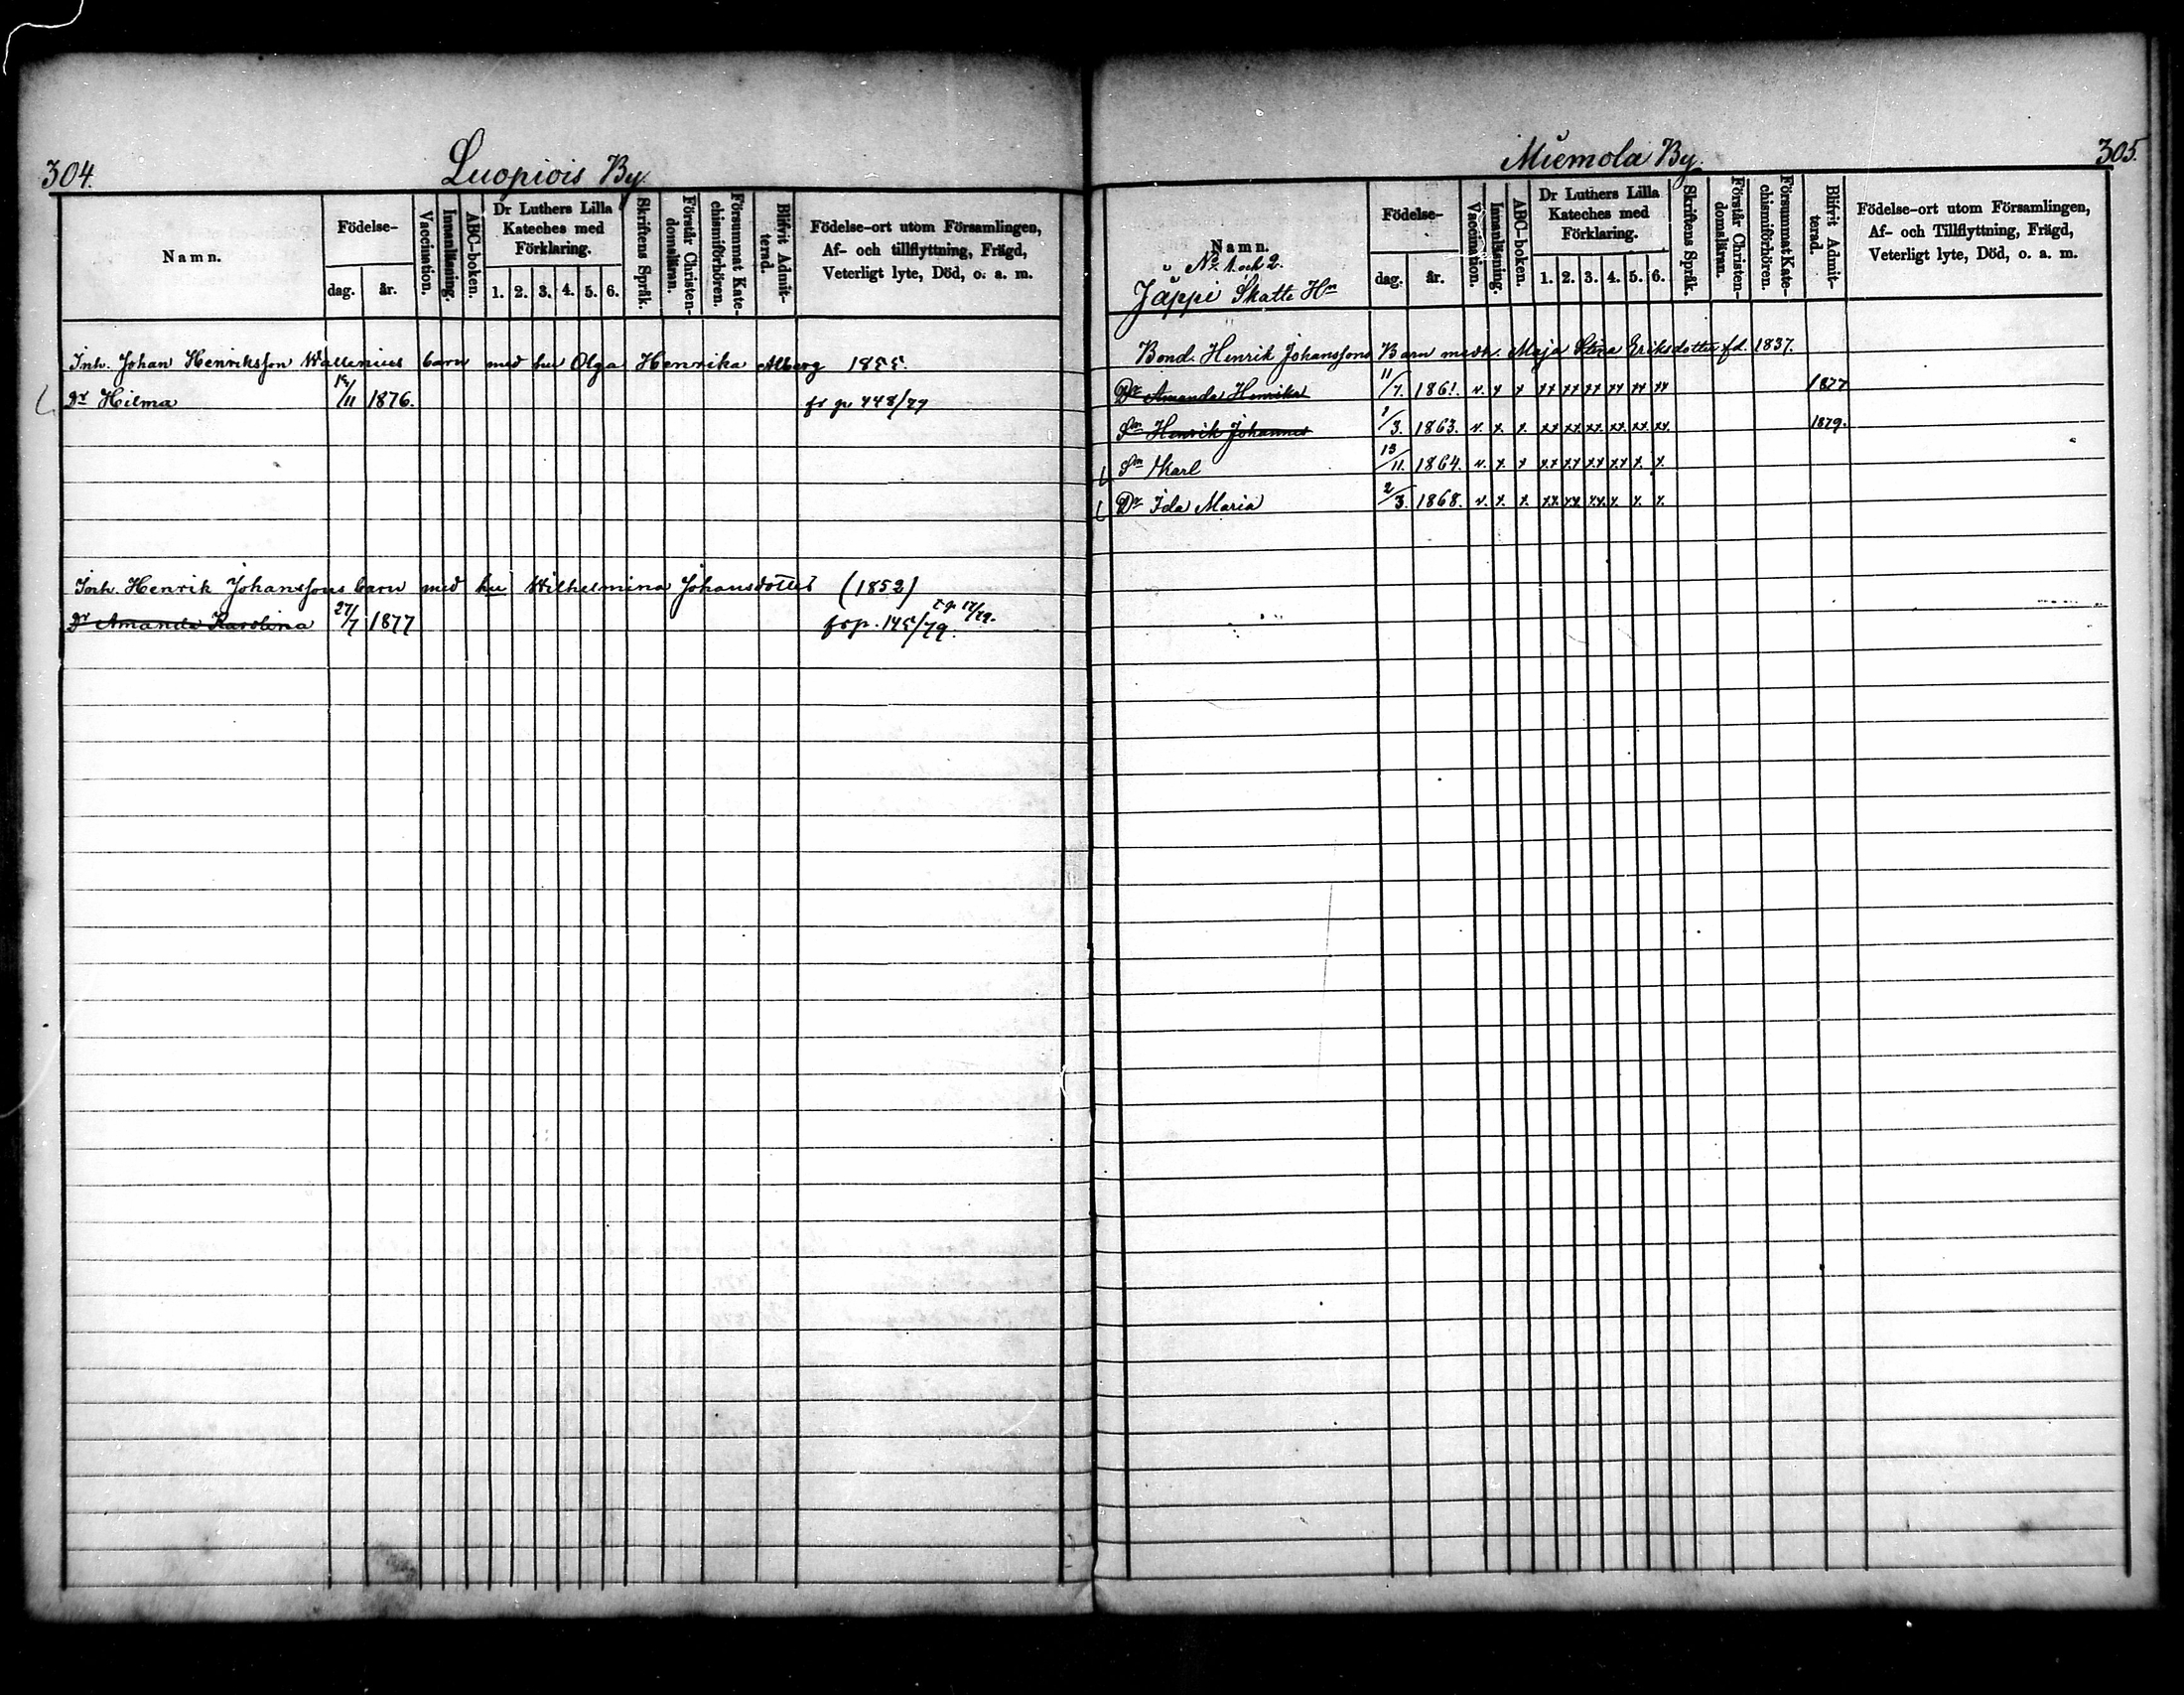 304.
Luopiois By.
Namn.
Födelse-
dag.
år.
Vaccination.
Innanläsning.
ABC-boken.
Dr Luthers Lilla
Kateches med
Förklaring.
1. 2. 3. 4. 5. 6.
Skriftens Språk.
Förstår Christen-
domsläran.
Försummat Kate-
chismiförhören.
Blifvit Admit-
terad.
Födelse-ort utom Församlingen,
Af- och tillflyttning, Frägd,
Veterligt lyte, Död, o. a. m.
Inh. Johan Henriksson Wallenius barn med hu Olga Henrika Alberg 1855.
Dr Hilma 15/11 1876. fr p. 448/77
Inh. Henrik Johanssons barn med hu Wilhelmina Johansdotter (1852)
Dr Amanda Karolina 27/7 1877 fr p. 145/79. t p 17/79.
Miemola By.
305.
Namn.
No 1 och 2.
Jäppi Skatte Hn
Födelse-
dag.
år.
Vaccination.
Innanläsning.
ABC-boken.
Dr Luthers Lilla
Kateches med
Förklaring.
1. 2. 3. 4. 5. 6.
Skriftens Språk.
Förstår Christen-
domsläran.
Försummat Kate-
chismiförhören.
Blifvit Admit-
terad.
Födelse-ort utom Församlingen,
Af- och Tillflyttning, Frägd,
Veterligt lyte, Död, o. a. m.
Bond. Henrik Johanssons Barn med h. Maja Stina Eriksdotter fd. 1837.
Dr Amanda Henrika 11/7. 1861. v. x x xx xx xx xx xx xx 1877
Sn Henrik Johannes 1/3. 1863. v. x. x. xx xx xx. xx. xx xx. 1879.
Sn Karl 13/11. 1864. v. x. x xx xx xx xx x. x.
Dr Ida Maria 2/3. 1868. v. x. x. xx. xx. xx. x. x. x.